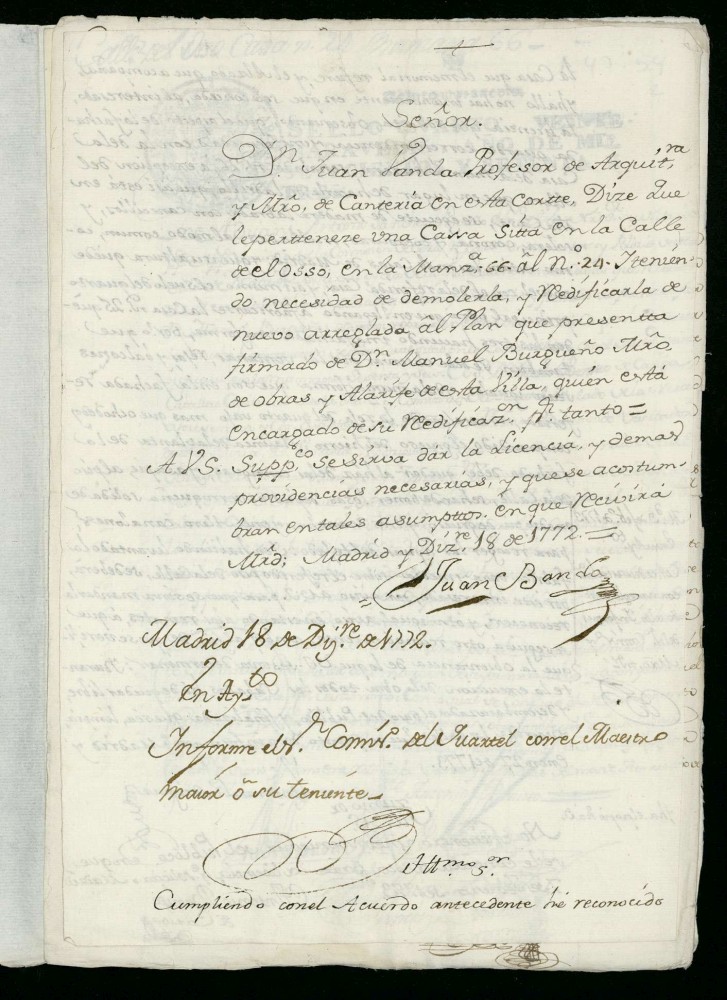 +
Señor.
Dn. Juan Banda Profesor de Arquitra.
y Mro. de Canteria en esta Cortte, Dize que
le pertteneze una Cassa Sitta en la Calle
de el Osso, en la Manza. 66. âl No. 24. I tenien-
do necesidad de demolerla, y Redificarla de
nuevo arreglada âl Plan que presentta
firmado de Dn. Manuel Burgueño Mro.
de obras y Alarife de esta Villa, quien está
encargado de su Redificazon. pr. tanto =
A.V.S. Suppco. se sirva dár la Licencia, y demas
providencias necesarias, y que se acostum-
bran en tales assumptos. en que Recivirá
Mrd; Madrid y Dizre. 18 de 1772. =
= Juan Banda
Madrid 18 de Dizre. de 1772.
En Aytto.
Informe el Sr. Comiso. del Quartel con el Maestro
maior ô su teniente
Illmo. Sor.
Cumpliendo con el Acuerdo antecedente hé reconocido